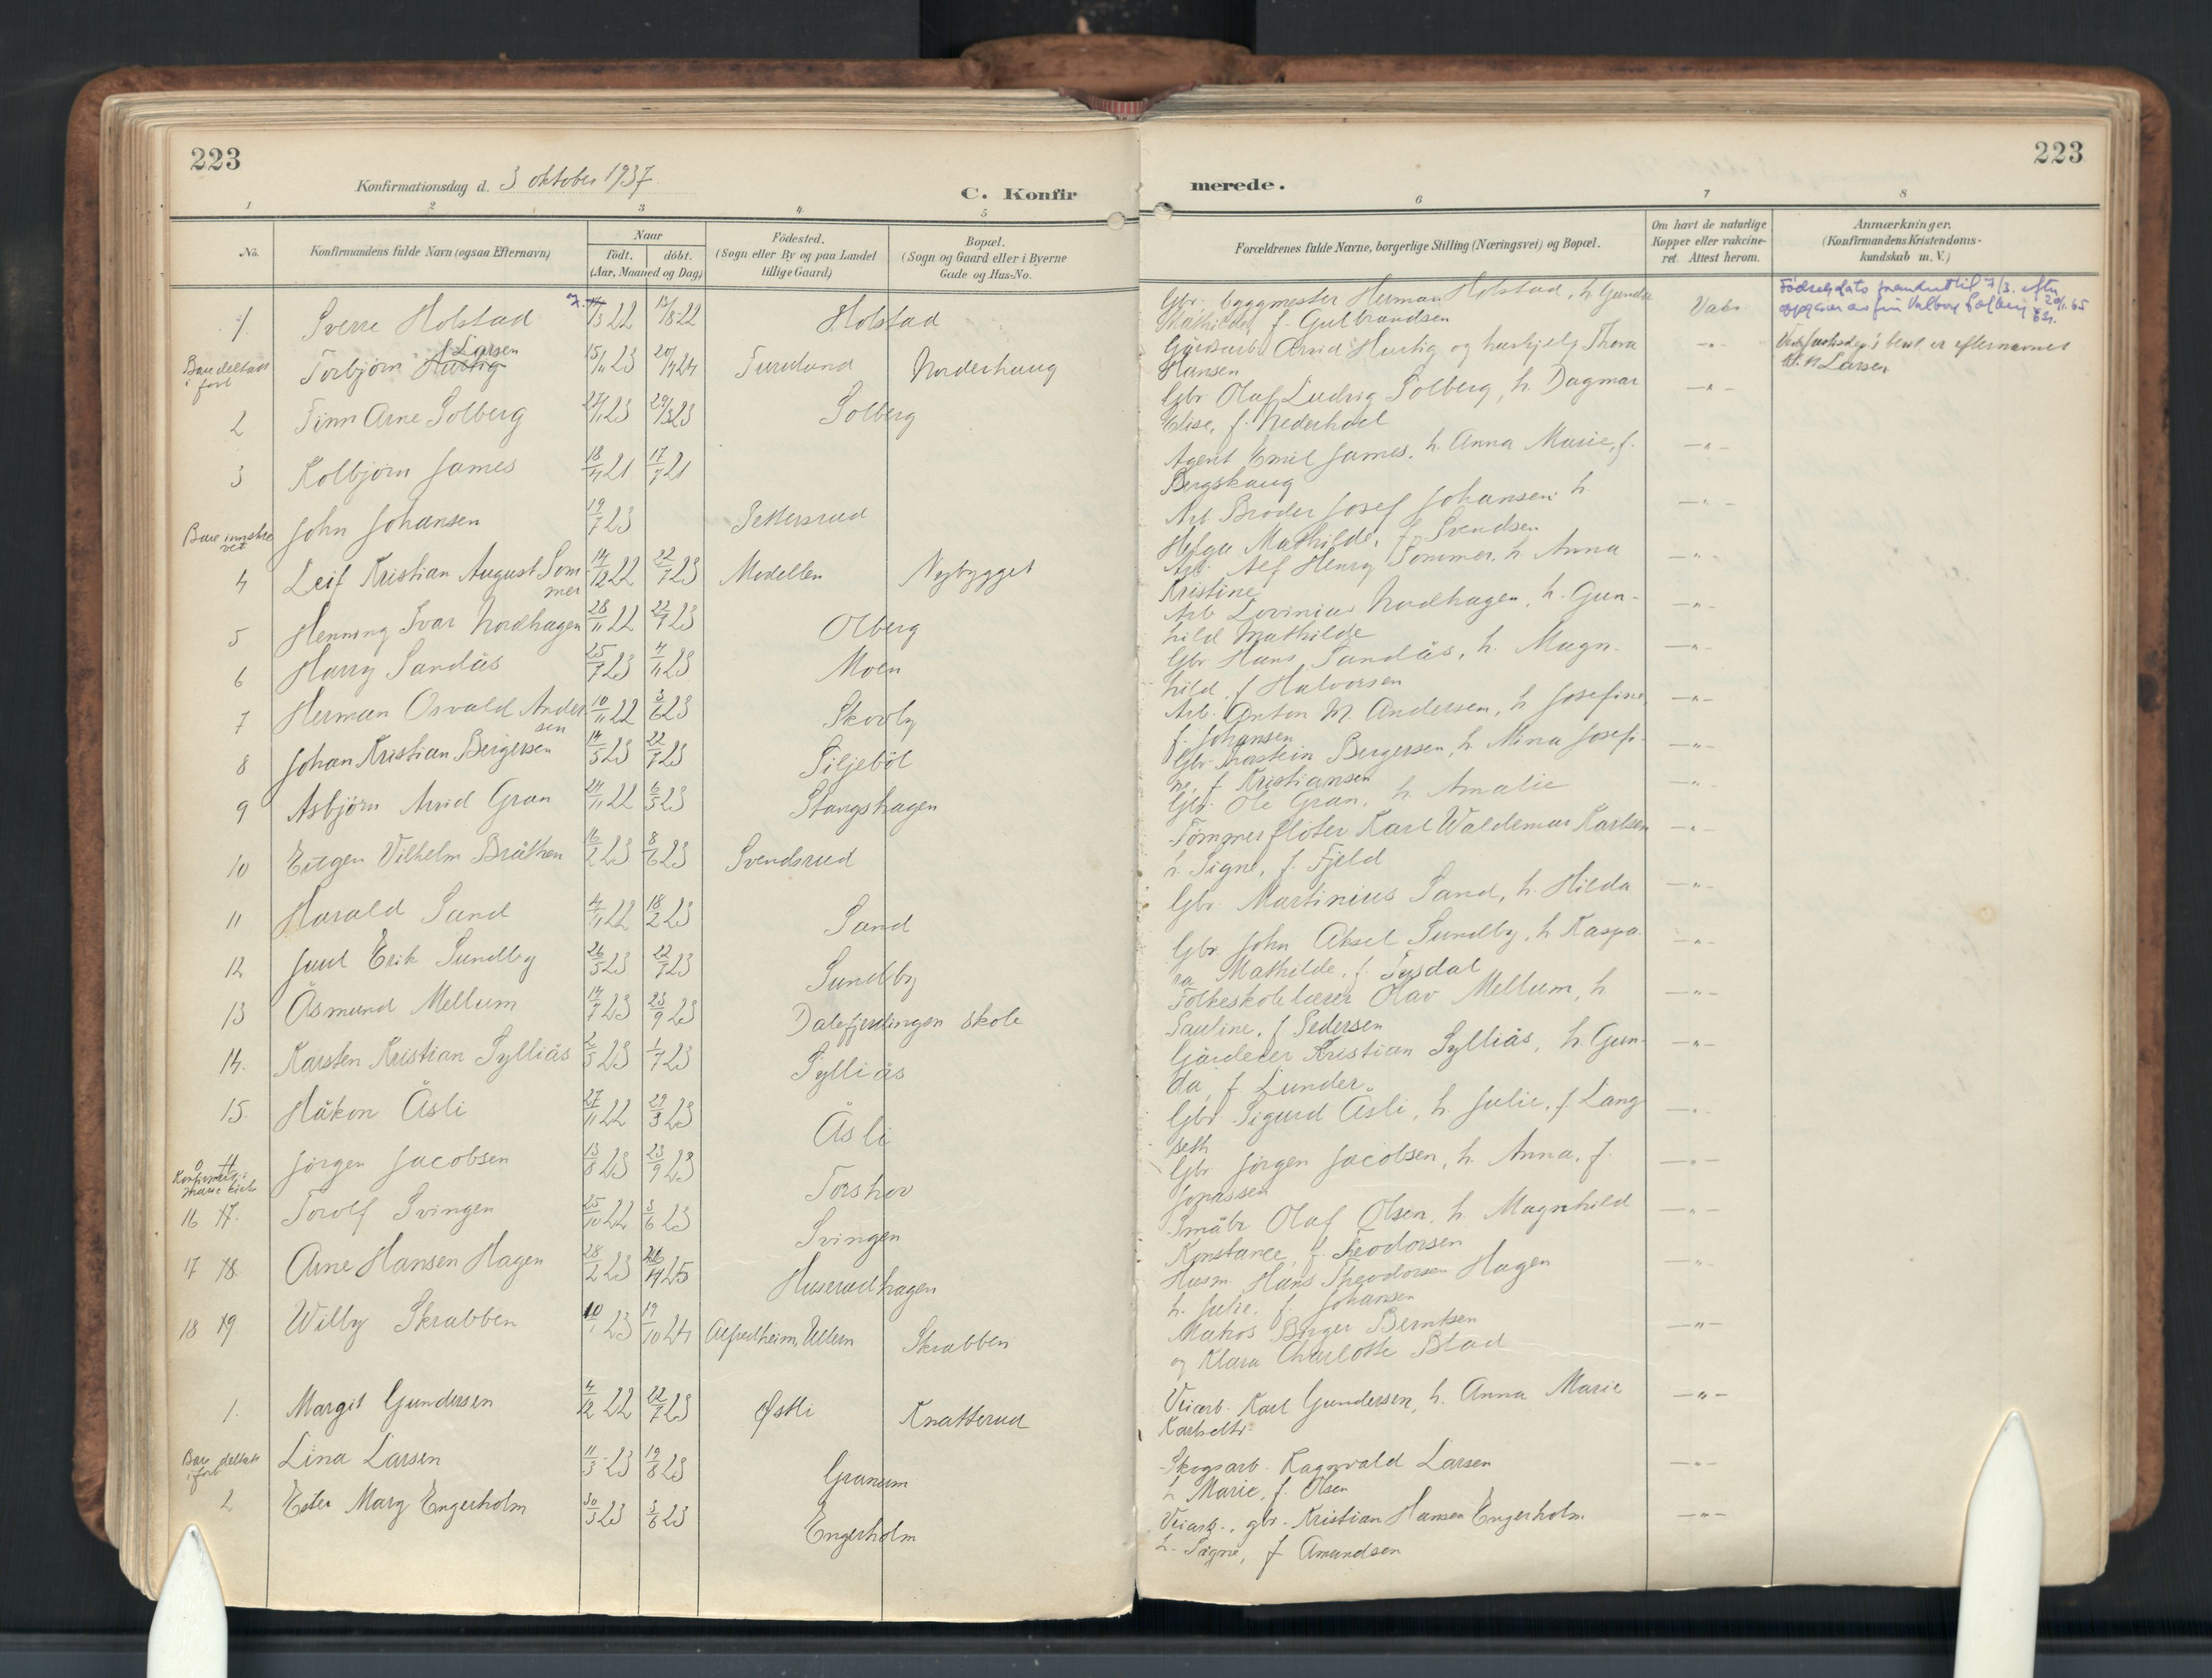 223
Konfirmationsdag d. 3 oktober 1937
C. Konfir
1 2 3 4 5
No. Konfirmandens fulde Navn (ogsaa Efternavn) Naar Födt. döbt. (Aar, Maaned og Dag) Födested. (Sogn eller By og paa Landet tillige Gaard) Bopæl. (Sogn og Gaard eller i Byerne Gade og Hus-No.
1. Sverre Holstad 7. 14/3 22 13/8 22 Holstad
Bare deltatt i forb Torbjörn Hartig Larsen 15/11 23 20/7 24 Norderhaug
2 Finn Arne Solberg 27/1 23 29/3 23 Solberg
3 Kolbjörn James 18/4 21 17/7 21
Bare innskre vet John Johansen 19/7 23 Pettersrud
4 Leif Kristian August Som mer 14/12 22 22/7 23 Modellen Nybygget
5 Henning Ivar Nordhagen 28/11 22 22/7 23 Olberg
6 Harry Sandås 25/7 23 4/11 23 Moen
7 Herman Osvald Ander sen 10/11 22 3/6 23 Skovly
8 Johan Kristian Bergersen 14/5 23 22/7 23 Siljeböl
9 Asbjörn Arvid Gran 24/11 22 6/5 23 Stangshagen
10 Eugen Vilhelm Bråthen 16/2 23 8/6 23 Svendsrud
11 Harald Sand 4/11 22 18/2 23 Sand
12 Juul Erik Sundby 26/5 23 22/7 23 Sundby
13 Åsmund Mellum 14/7 23 23/9 23 Dalefjerdingen skole
14. Karsten Kristian Sylliås 2/5 23 1/7 23 Sylliås
15. Håkon Åsli 27/11 22 29/3 23 Åsli
Jörgen Jacobsen 13/8 23 23/9 23 Torshov
16 17. Torolf Svingen 25/10 22 3/6 23 Svingen
17 18. Arne Hansen Hagen 28/2 23 25 Huserudhagen
18 19 Willy Skrabben 10/1 23 19/10 24 Ullern Skrabben
1. Margit Gundersen 4/12 22 22/7 23 Østli Knatterud
Bare deltatt i forb Lina Larsen 11/3 23 19/8 23 Granum
2 Ester Mary Engerholm 30/3 23 3/6 23 Engerholm
223
merede.
6 7 8
Forældrenes fulde Navne, borgerlige Stilling (Næringsvei) og Bopæl. Om havt de naturlige Kopper eller vakcineret. Attest herom. Anmærkninger, (Konfirmandens Kristendomskundskab m. V.)
Gbr. byggmester Herman Holstad, h. Gunda Vaks. Födselsdato forandret til 7/3. efter
Mathilde, f. Gulbrandsen
Gårdsarb. Arvid Hartig og hushjelp Thora — " —
Hansen
Gbr. Olaf Ludvig Solberg, h. Dagmar — " —
Elise, f. Nederhoel
Agent Emil James, h. Anna Marie, f. — " —
Bergshaug
Arb. Broder Josef Johansen h. — " —
Helga Mathilde, f. Svendsen
Arb. Alf Henry Sommer, h. Anna — " —
Kristine
Arb. Lovinius Nordhagen, h. Gun- — " —
hild Mathilde
Gbr. Hans Sandås, h. Magn- — " —
hild, f Halvorsen
Arb. Anton M. Andersen, h Josefine, — " —
f. Johansen
Gbr. Thorstein Bergersen, h. Mina Josefi- — " —
ne, f Kristiansen
Gbr. Ole Gran, h. Amalie — " —
Tömmerflöter Karl Waldemar Karlsen — " —
h. Signe, f. Fjeld
Gbr. Martinius Sand, h. Hilda — " —
Gbr. John Aksel Sundby, h. Kaspa- — " —
ra Mathilde, f. Tysdal
Folkeskolelærer Olav Mellum, h. — " —
Pauline, f Pedersen
Gårdeier Kristian Sylliås, h. Gun- — " —
da, f Lunder.
Gbr. Sigurd Åsli, h. Julie, f Lang — " —
seth
Gbr Jörgen Jacobsen, h. Anna, f. — " —
Jonassen
Småbr. Olaf Olsen, h. Magnhild — " —
Konstance, f. Teodorsen
Husm. Hans Theodorsen Hagen — " —
h. Julie, f. Johansen
Matros Birger Berntsen — " —
og Klara Charlotte Blad
Veiarb. Karl Gundersen, h. Anna Marie — " —
Skogsarb. Ragnvald Larsen — " —
h. Marie, f. Olsen
Veiarb., gbr. Kristian Hansen Engerholm — " —
h. Signe, f Amundsen